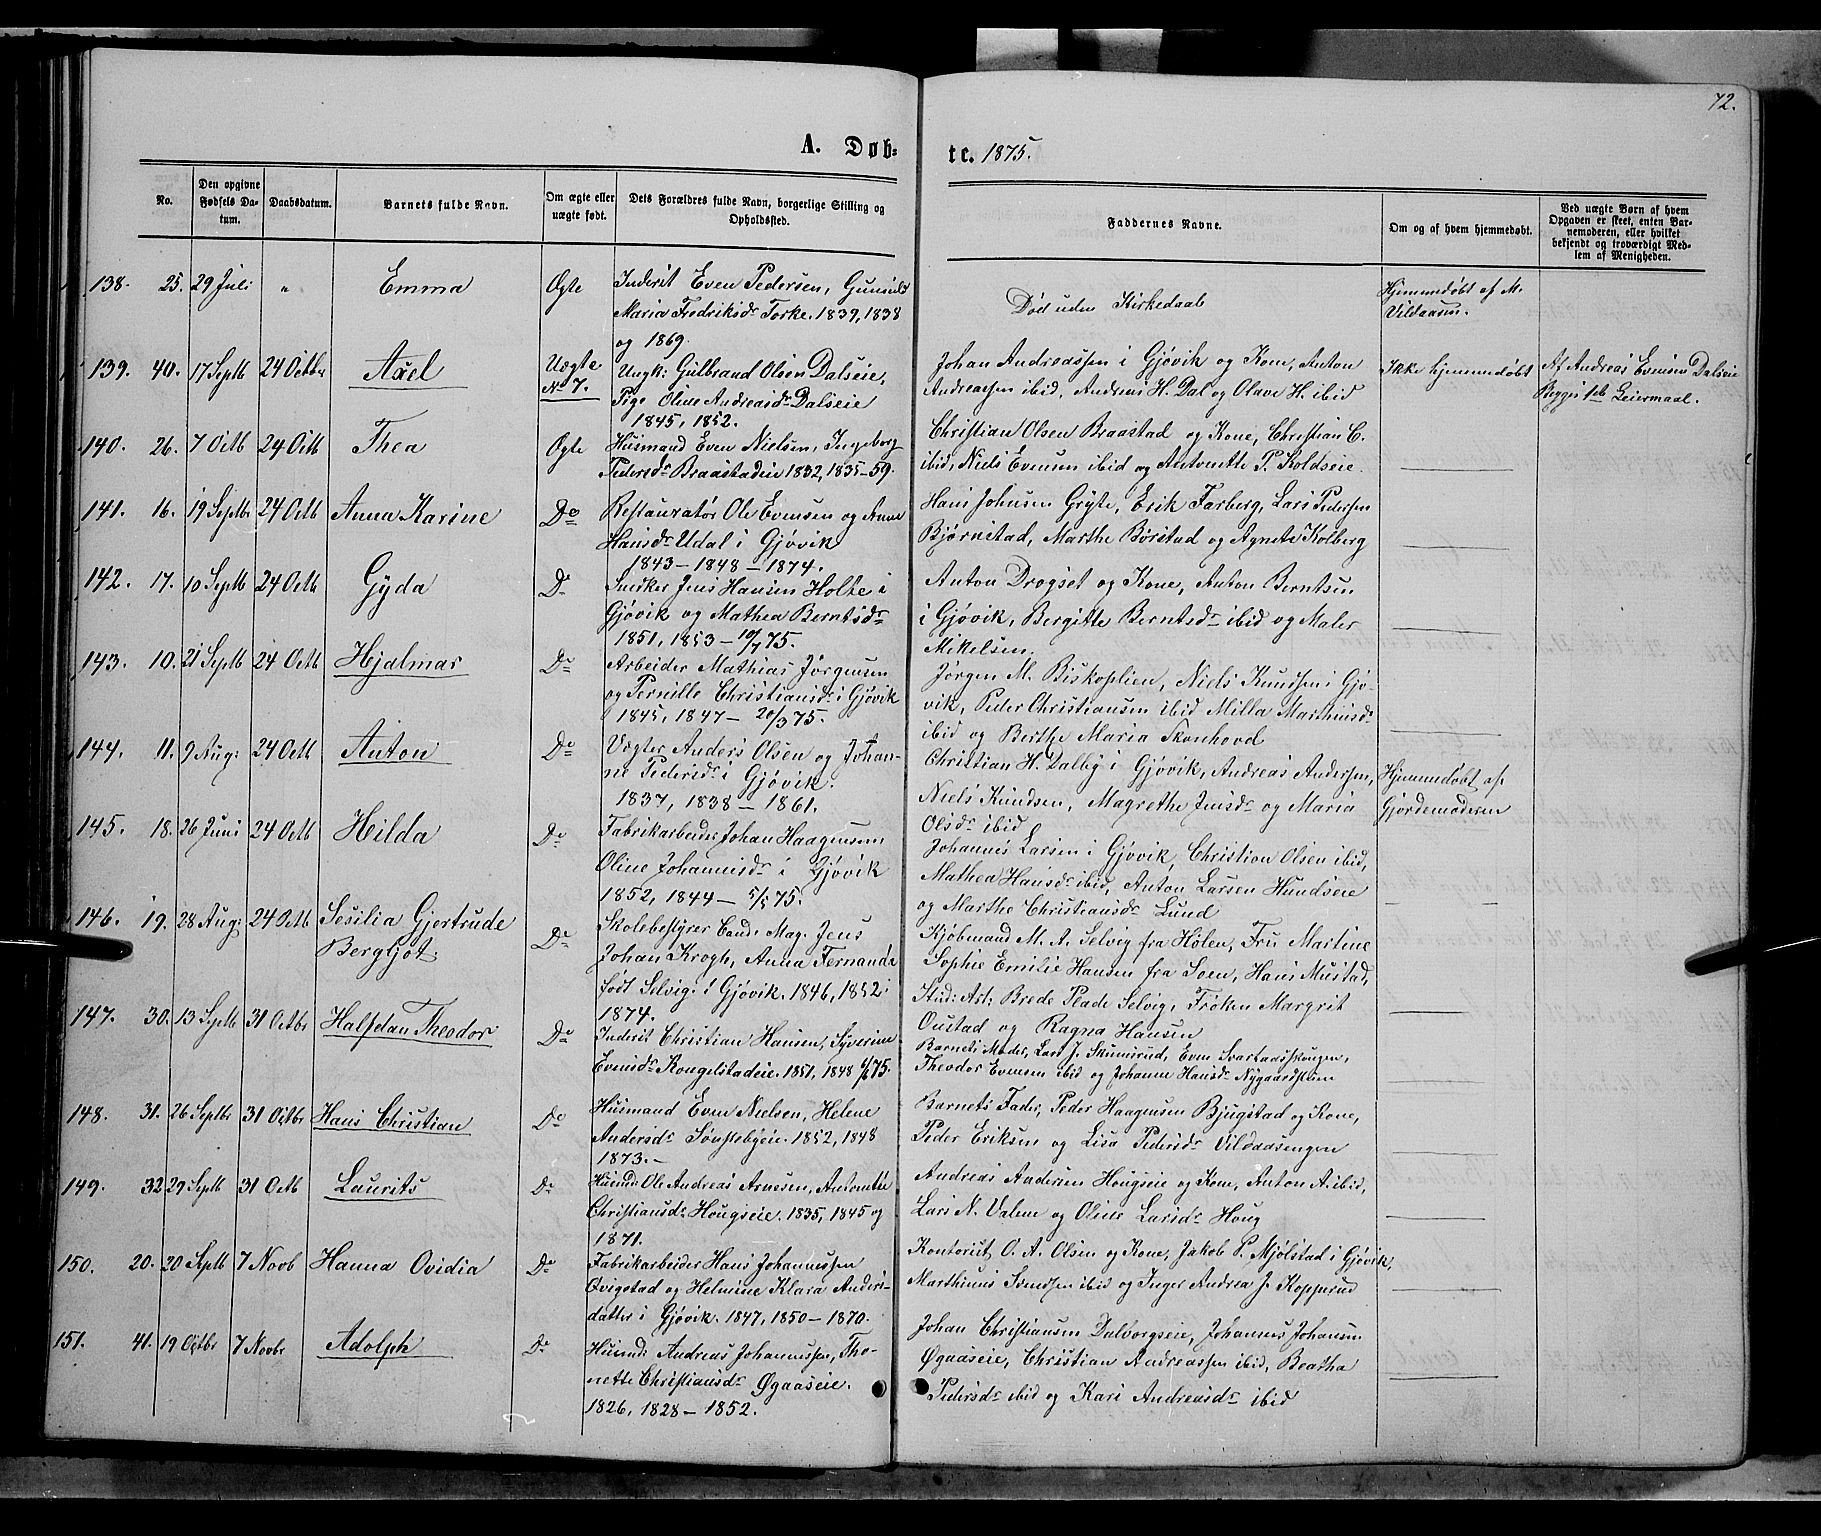 72.
A. Døb-te. 1875.
No.
Den opgivne Fødsels Datum.
Daabsdatum.
Barnets fulde Navn.
Om ægte eller uægte født.
Dets Forældres fulde Navn, borgerlige Stilling og Opholdssted.
Faddernes Navne.
Om og af hvem hjemmedøbt.
Ved uægte Børn af hvem Opgaven er skeet, enten Barnemoderen, eller hvilket bekjendt og troværdigt Medlem af Menigheden.
138. 25. 29 Juli " Emma Ægte
Inderst Even Pedersen, Gunild
Maria Fredriksdr Torke. 1839, 1838
og 1869.
Død uden Kirkedaab
Hjemmedøbt af M.
Vildaasen.
139. 40. 17 Septb 24 Octbr Axel Uægte
No 7.
Ungk: Gulbrand Olsen Dalseie,
Pige Oline Andreasdr Dalseie
1845, 1852.
Johan Andreassen i Gjøvik og Kone, Anton
Andreassen ibid, Andreas H. Dal og Olave H. ibid
Ikke hjemmedøbt
Af Andreas Evensen Dalseie
Begges 1ste Leiermaal.
140. 26. 7 Octb 24 Octb Thea Ægte
Husmand Even Nielsen, Ingeborg
Pedersdr Braastadeie 1832, 1835-59.
Christian Olsen Braastad og Kone, Christian C.
ibid, Niels Evensen ibid og Antonette P. Koldseie.
141. 16. 19 Septbr 24 Octb Anna Karine Do
Restauratør Ole Evensen og Anne
Hansdr Udal i Gjøvik
1843 - 1848 - 1874.
Hans Johnsen Gryte, Erik Farberg, Lars Pedersen
Bjørnstad, Marthe Børstad og Agnete Kolberg
142. 17. 10 Septb 24 Octb Gyda Do
Snedker Jens Hansen Holte i
Gjøvik og Mathea Berntsdr
1851, 1853 - 10/7 75.
Anton Drogset og Kone, Anton Berntsen
i Gjøvik, Bergitte Berntsdr ibid og Maler
Mikelsen.
143. 10. 21 Septb 24 Octb Hjalmar Do
Arbeider Mathias Jørgensen
og Pernille Christiansdr i Gjøvik
1845, 1847 - 20/3 75.
Jørgen M. Biskoplien, Niels Knudsen i Gjø-
vik, Peder Christiansen ibid Milla Marthinsdr
ibid og Berthe Maria Skonhovd
144. 11. 9 Aug: 24 Octb Anton Do
Vægter Anders Olsen og Johan-
ne Pedersdr i Gjøvik.
1837, 1838 - 1861.
Christian H. Dalby i Gjøvik, Andreas Andersen,
Niels Knudsen, Magrethe Jensdr og Maria
Olsdr ibid
Hjemmedøbt af
Gjordemoderen
145. 18. 26 Juni 24 Octb Hilda Do
Fabrikarbeider Johan Haagensen
Oline Johannesdr i Gjøvik
1852, 1844 - 5/5 75.
Johannes Larsen i Gjøvik, Christian Olsen ibid,
Mathea Hansdr ibid, Anton Larsen Hundseie
og Marthe Christiansdr Lund
146. 19. 28 Aug: 24 Octb Sesilia Gjertrude
Bergljot. Do
Skolebestyrer Cand: Mag. Jens
Johan Krogh, Anna Fernanda
født Selvig i Gjøvik. 1846, 1852:
1874.
Kjøbmand M. A. Selvig fra Hølen, Fru Martine
Sophie Emilie Hansen fra Soen, Hans Mustad,
Stud: Art: Brede Plade Selvig, Frøken Margrit
Oustad og Ragna Hansen
147. 30. 13 Septb 31 Octbr Halfdan Theodor Do
Inderst Christian Hansen, Syverine
Evensdr Kongelstadeie. 1851, 1848 6/6 75.
Barnets Moder, Lars J. Skumsrud, Even Svartaasskougen,
Theodor Evensen ibid og Johanne Hansdr Nygaardsteen
148. 31. 26 Septbr 31 Octbr Hans Christian Do
Husmand Even Nielsen, Helene
Andersdr Sønstebyeie. 1852, 1848
1873.-
Barnets Fader, Peder Haagensen Bjugstad og Kone,
Peder Eriksen og Lisa Pedersdr Vildaasengen
149. 32 29 Septb 31 Octb Laurits Do
Husmd: Ole Andreas Arnesen, Antonette
Christiansdr Hougseie. 1835, 1845 og
1871.
Andreas Andersen Hougseie og Kone, Anton A. ibid,
Lars N. Valene og Oline Larsdr Houg
150. 20. 20 Septb 7 Novb Hanna Ovidia Do
Fabrikarbeider Hans Johannessen
Qvigstad og Helmine Klara Anders-
datter i Gjøvik. 1847, 1850 - 1870.
Kontorist O. A. Olsen og Kone, Jakob P. Mjølstad i Gjøvik,
Marthinus Svendsen ibid og Inger Andrea J. Kopperud
151. 41. 19 Octbr 7 Novbr Adolph Do
Husmd: Andreas Johannessen, Tho-
nette Christiansdr Øgaaseie.
1826, 1828 - 1852.
Johan Christiansen Dalborgseie, Johannes Johansen
Øgaaseie, Christian Andreassen ibid, Beatha
Pedersdr ibid og Kari Andreasdr ibid